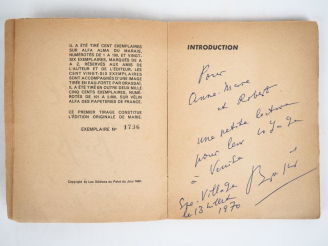 IL A ÉTÉ TIRÉ CENT EXEMPLAIRES
SUR ALFA ALMA DU MARAIS,
NUMÉROTÉS DE 1 A 100, ET VINGT-
SIX EXEMPLAIRES, MARQUÉS DE A
A Z, RÉSERVÉS AUX AMIS DE
L'AUTEUR ET DE L'ÉDITEUR. LES
CENT VINGT-SIX EXEMPLAIRES
SONT ACCOMPAGNÉS D'UNE IMAGE
TIRÉE EN EAU-FORTE PAR BRASSAÏ.
IL A ÉTÉ TIRÉ EN OUTRE DEUX MILLE
CINQ CENTS EXEMPLAIRES, NUMÉ-
ROTÉS DE 101 A 2.600, SUR VÉLIN
ALFA DES PAPETERIES DE FRANCE.
CE PREMIER TIRAGE CONSTITUE
L'ÉDITION ORIGINALE DE
EXEMPLAIRE N° 1736
Copyright by Les Éditions du Point du Jour
INTRODUCTION
Pour
Anne-Marie
et Robert
une petite lecture
pour leur voyage
à Venise
Brassaï
Eze-Village
le 13
1970